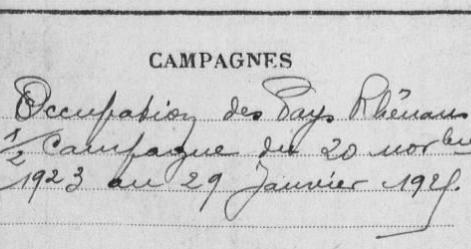 CAMPAGNES
Occupation des Pays Rhénans
1/2 Campagne du 20 novbre
1923 au 29 Janvier 1925.